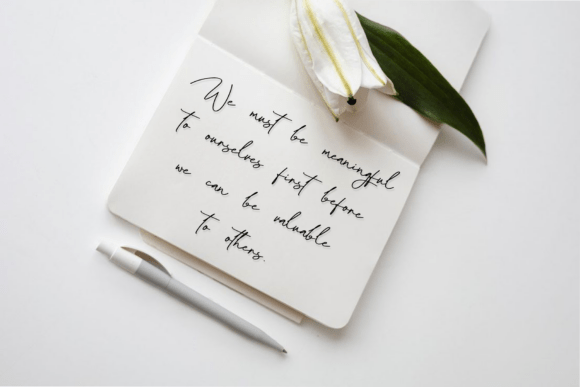 We must be meaningful
to ourselves first before
we can be valuable
to others.